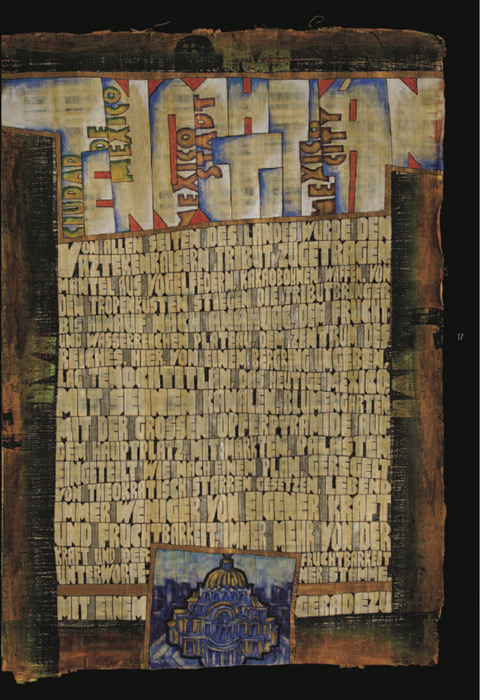 TENOCHTITLÁN
CIUDAD DE MEXICO
MEXICO STADT
MEXICO CITY
VON ALLEN SEITEN DES LANDES WURDE DEN
AZTEKENKAISERN TRIBUT ZUGETRAGEN
MANTEL AUS VOGELFEDERN KAKAOBOHNEN WAFFEN. VON
DEN TROPENKÜSTEN STIEGEN DIE TRIBUTBRINGER
DES LANDES HOCH FRUCHT
UND WASSERREICHEN PLATEAU DEM ZENTRUM DES
REICHES. HIER VON EINEM BERGRING UMGEBEN,
LAG TENOCHTITLAN, DAS HEUTIGE MEXICO
MIT SEINEN KANÄLEN, BLUMENGÄRTEN
MIT DER GROSSEN OPFERPYRAMIDE AUF
DEM HAUPTPLATZ, MIT MÄRKTEN, PALÄSTEN
EINGETEILT WIE NACH EINEM PLAN, GEREGELT
VON THEOKRATISCH STARREN GESETZEN, LEBEND
IMMER WENIGER VON EIGENER KRAFT
UND FRUCHTBARKEIT, IMMER MEHR VON DER
KRAFT UND DER FRUCHTBARKEIT
UNTERWORFENER STÄMME
MIT EINEM GERADEZU
17